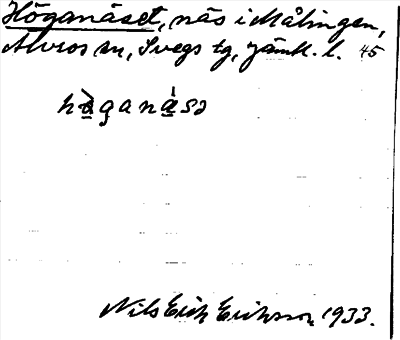 Höganäset, näs i Målingen,
Alvros sn, Svegs tg, Jämtl. l. 45
hàganása
Nils Erik Eriksson 1933.